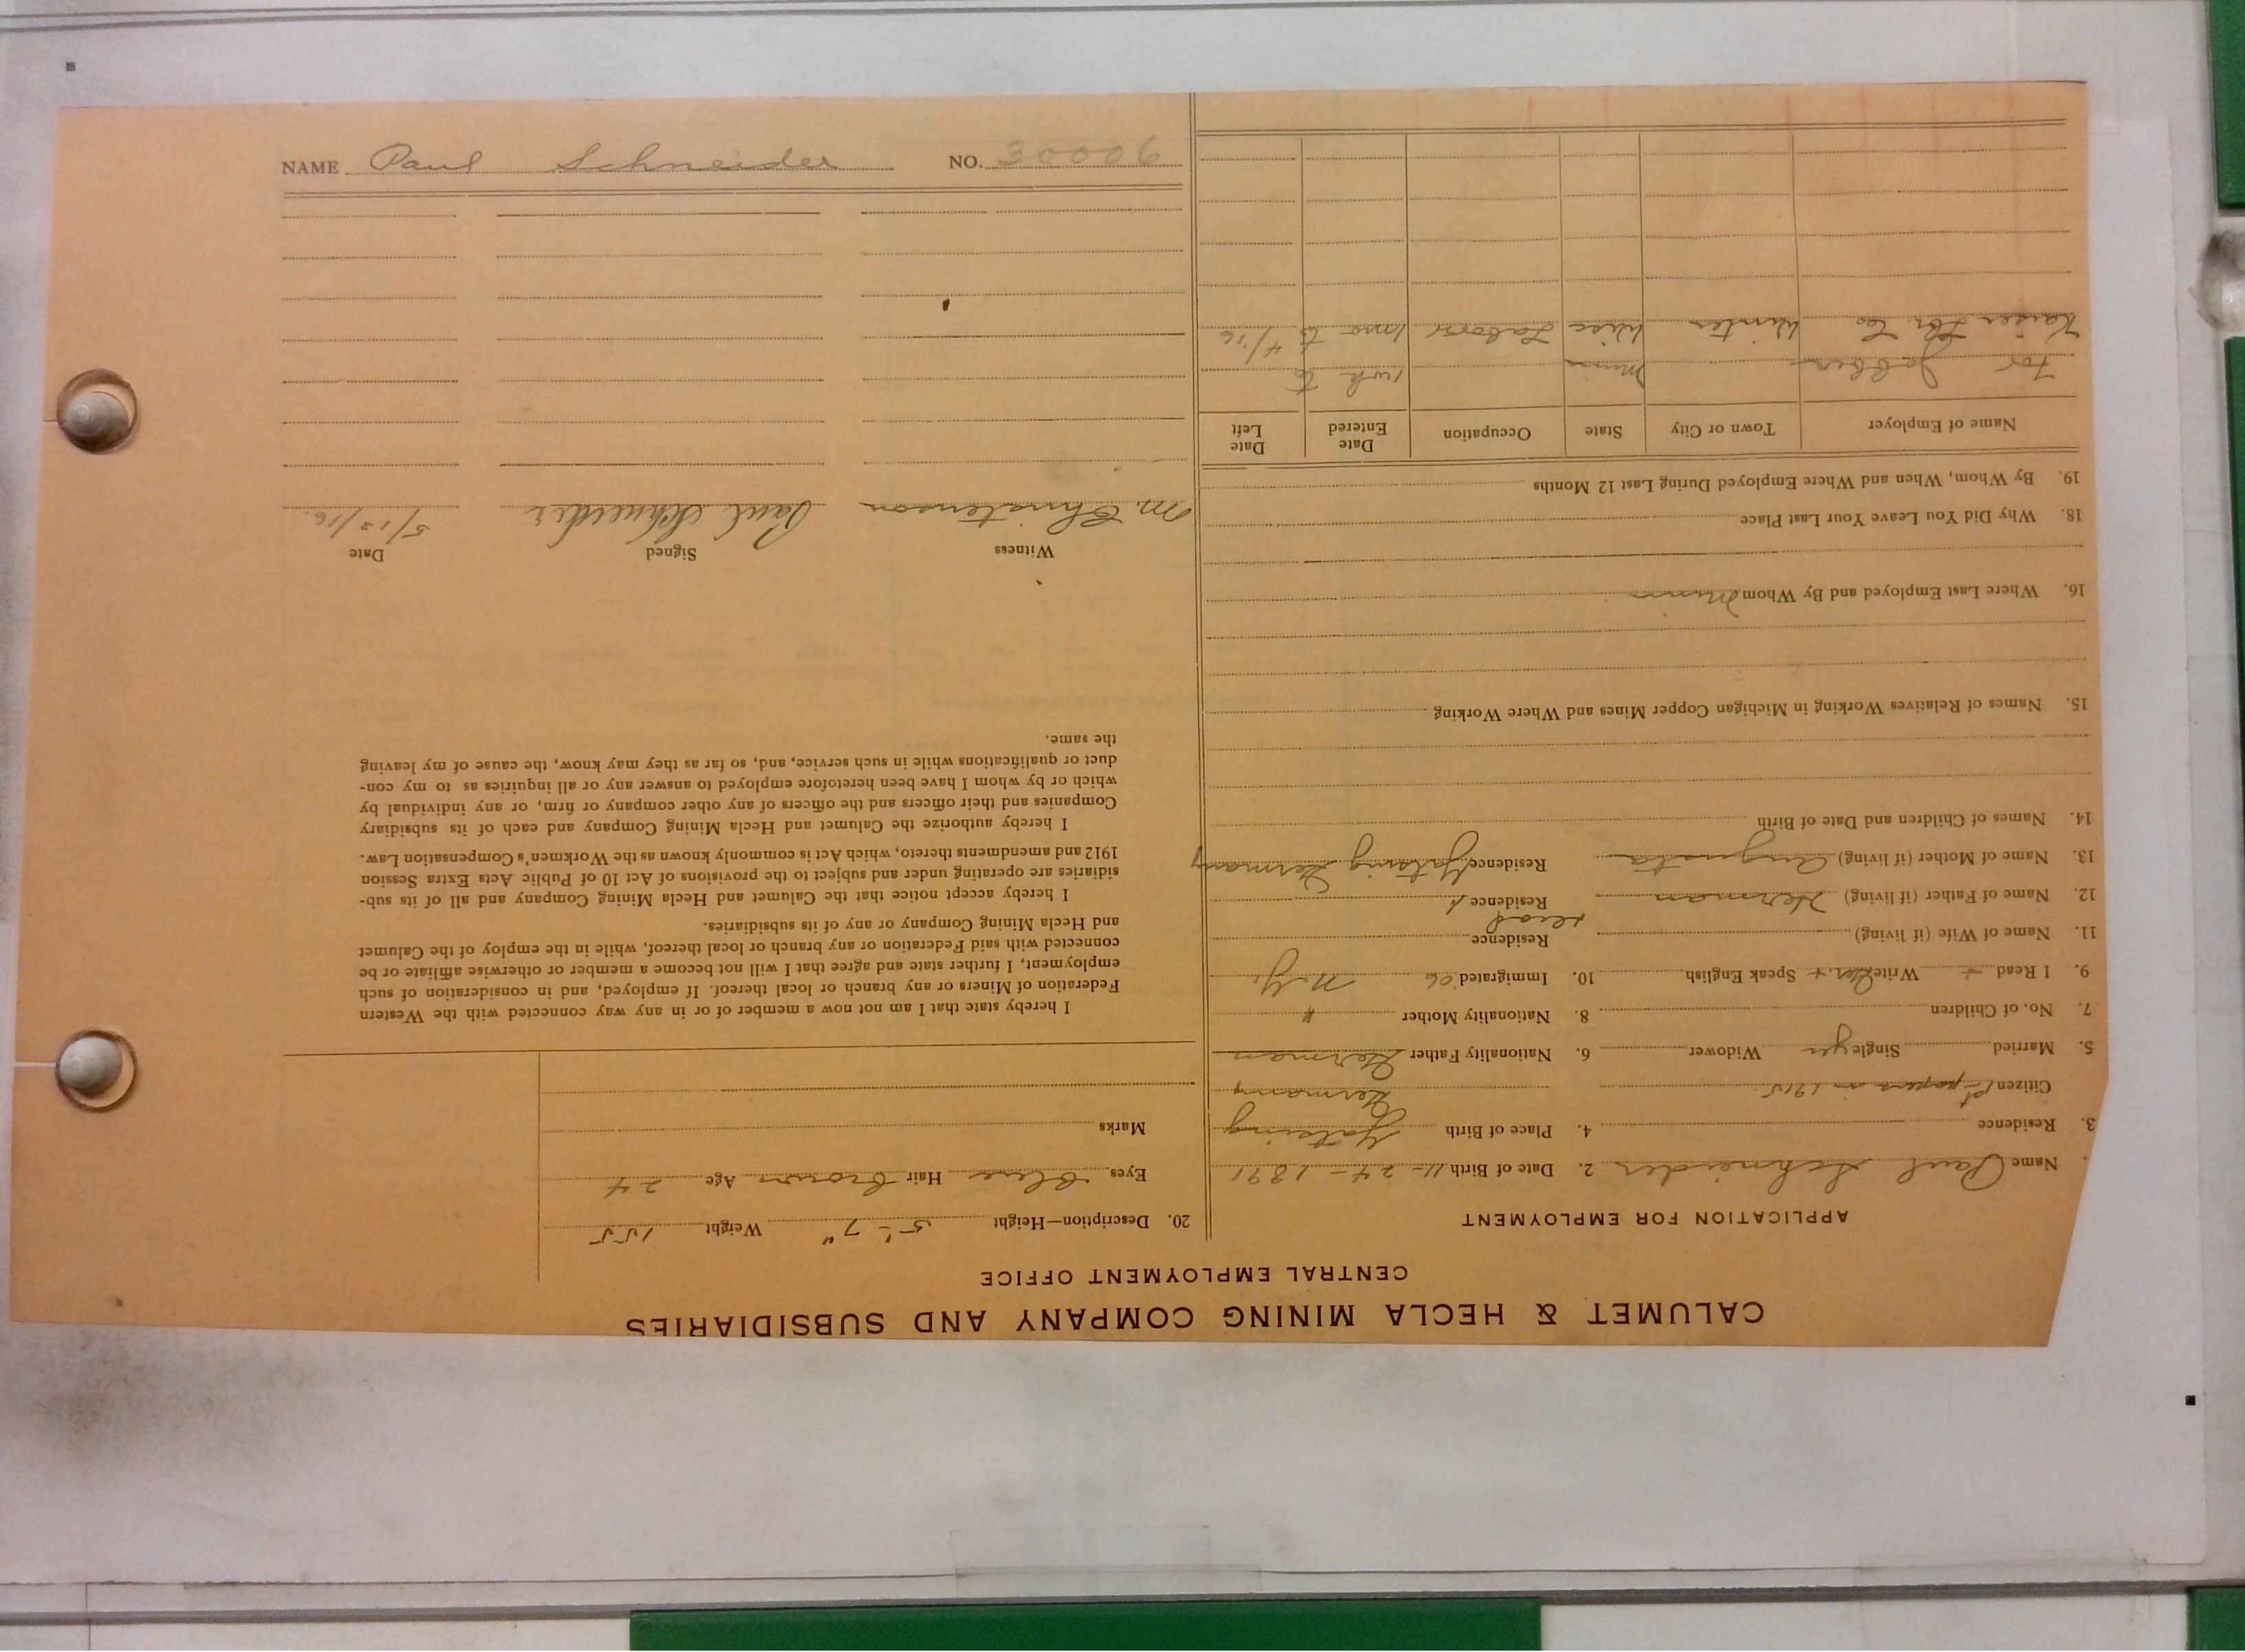 CALUMET & HECLA MINING COMPANY AND SUBSIDIARIES
CENTRAL EMPLOYMENT OFFICE
APPLICATION FOR EMPLOYMENT
Name Paul Schneider 2. Date of Birth 11-24-1891
3. Residence 4. Place of Birth
Citizen 1st papers in 1915. Germany
5. Married Single yes Widower 6. Nationality Father German
7. No. of Children 8. Nationality Mother "
9. I Read + Write Ger. + Speak English 10. Immigrated '06 N.Y.
11. Name of Wife (if living) Residence
dead
12. Name of Father (if living) Herman Residence
13. Name of Mother (if living) Augusta Residence Germany
14. Names of Children and Date of Birth
15. Names of Relatives Working in Michigan Copper Mines and Where Working
16. Where Last Employed and By Whom Minn
18. Why Did You Leave Your Last Place
19. By Whom, When and Where Employed During Last 12 Months
Name of Employer Town or City State Occupation Date Entered Date Left
For Jobber Minn 1 wk to
Kaiser Lbr. Co Winter Wisc Labor 1 mo to 4/16
20. Description—Height 5' 7" Weight 155
Eyes Blue Hair brown Age 24
Marks
I hereby state that I am not now a member of or in any way connected with the Western
Federation of Miners or any branch or local thereof. If employed, and in consideration of such
employment, I further state and agree that I will not become a member or otherwise affiliate or be
connected with said Federation or any branch or local thereof, while in the employ of the Calumet
and Hecla Mining Company or any of its subsidiaries.
I hereby accept notice that the Calumet and Hecla Mining Company and all of its sub-
sidiaries are operating under and subject to the provisions of Act 10 of Public Acts Extra Session
1912 and amendments thereto, which Act is commonly known as the Workmen's Compensation Law.
I hereby authorize the Calumet and Hecla Mining Company and each of its subsidiary
Companies and their officers and the officers of any other company or firm, or any individual by
which or by whom I have been heretofore employed to answer any or all inquiries as to my con-
duct or qualifications while in such service, and, so far as they may know, the cause of my leaving
the same.
Witness Signed Date
M. Christenson Paul Schneider 5/13/16.
NAME Paul Schneider NO. 30006